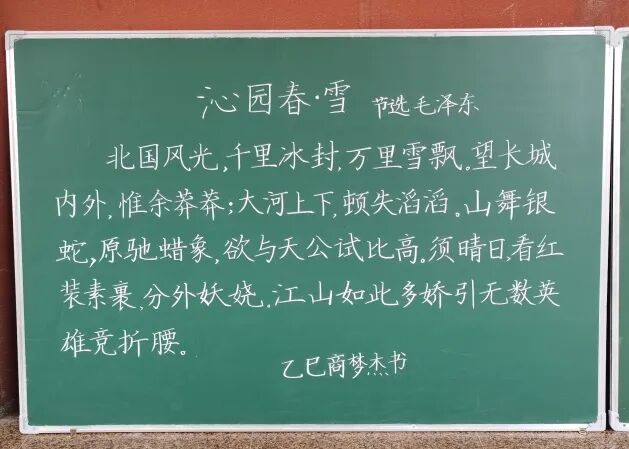 沁园春·雪 节选毛泽东
北国风光,千里冰封,万里雪飘。望长城
内外,惟余莽莽;大河上下,顿失滔滔。山舞银
蛇,原驰蜡象,欲与天公试比高。须晴日,看红
装素裹,分外妖娆。江山如此多娇引无数英
雄竞折腰。
乙巳商梦杰书